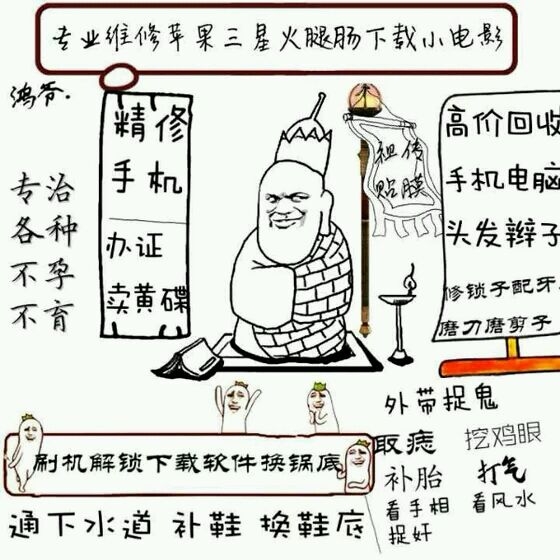 专业维修苹果三星火腿肠下载小电影
鸿爷.
精修
手机
办证
卖黄碟
专治
各种
不孕
不育
祖传
贴膜
高价回收
手机电脑
头发辫子
修锁子配牙
磨刀磨剪子
外带捉鬼
取痣
挖鸡眼
补胎
打气
看手相
看风水
捉奸
刷机解锁下载软件换锅底
通下水道 补鞋 换鞋底